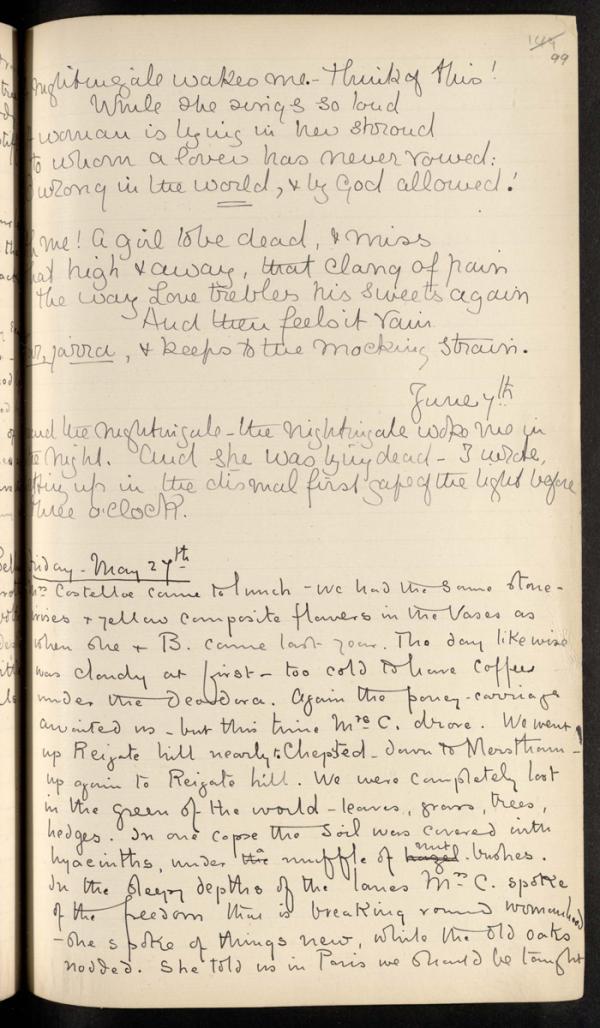 144
99
nightingale wakes me. - Think of this!
While she sings so loud
woman is lying in her shroud
to whom a lover has never vowed:
wrong in the world, & by God allowed!
me! A girl to be dead, & miss
that high & away, that clang of pain
the way Love trebles his sweets again
And then feels it vain
jarra, & keeps to the mocking strain.
June 7th
and the nightingale - the nightingale woke me in
the night. And she was lying dead - I wrote,
sitting up in the dismal first gape of the light before
three o'clock.
Friday - May 27th
Mrs Costelloe came to lunch - we had the same stone-
& yellow composite flowers in the Vases as
when she & B. came last year. The day likewise
was cloudy at first - too cold to have coffee
under the Deodora. Again the poney-carriage
awaited us - but this time Mrs C. drove. We went
up Reigate hill nearly to Chepsted - down to Merstham -
up again to Reigate hill. We were completely lost
in the green of the world - leaves, grass, trees,
hedges. In one copse the soil was covered with
hyacinths, under the a muffle of hazel nut-bushes.
In the sleepy depths of the lanes Mrs C. spoke
of the freedom that is breaking round womanhood
- she spoke of things new, while the old oaks
nodded. She told us in Paris we should be taught